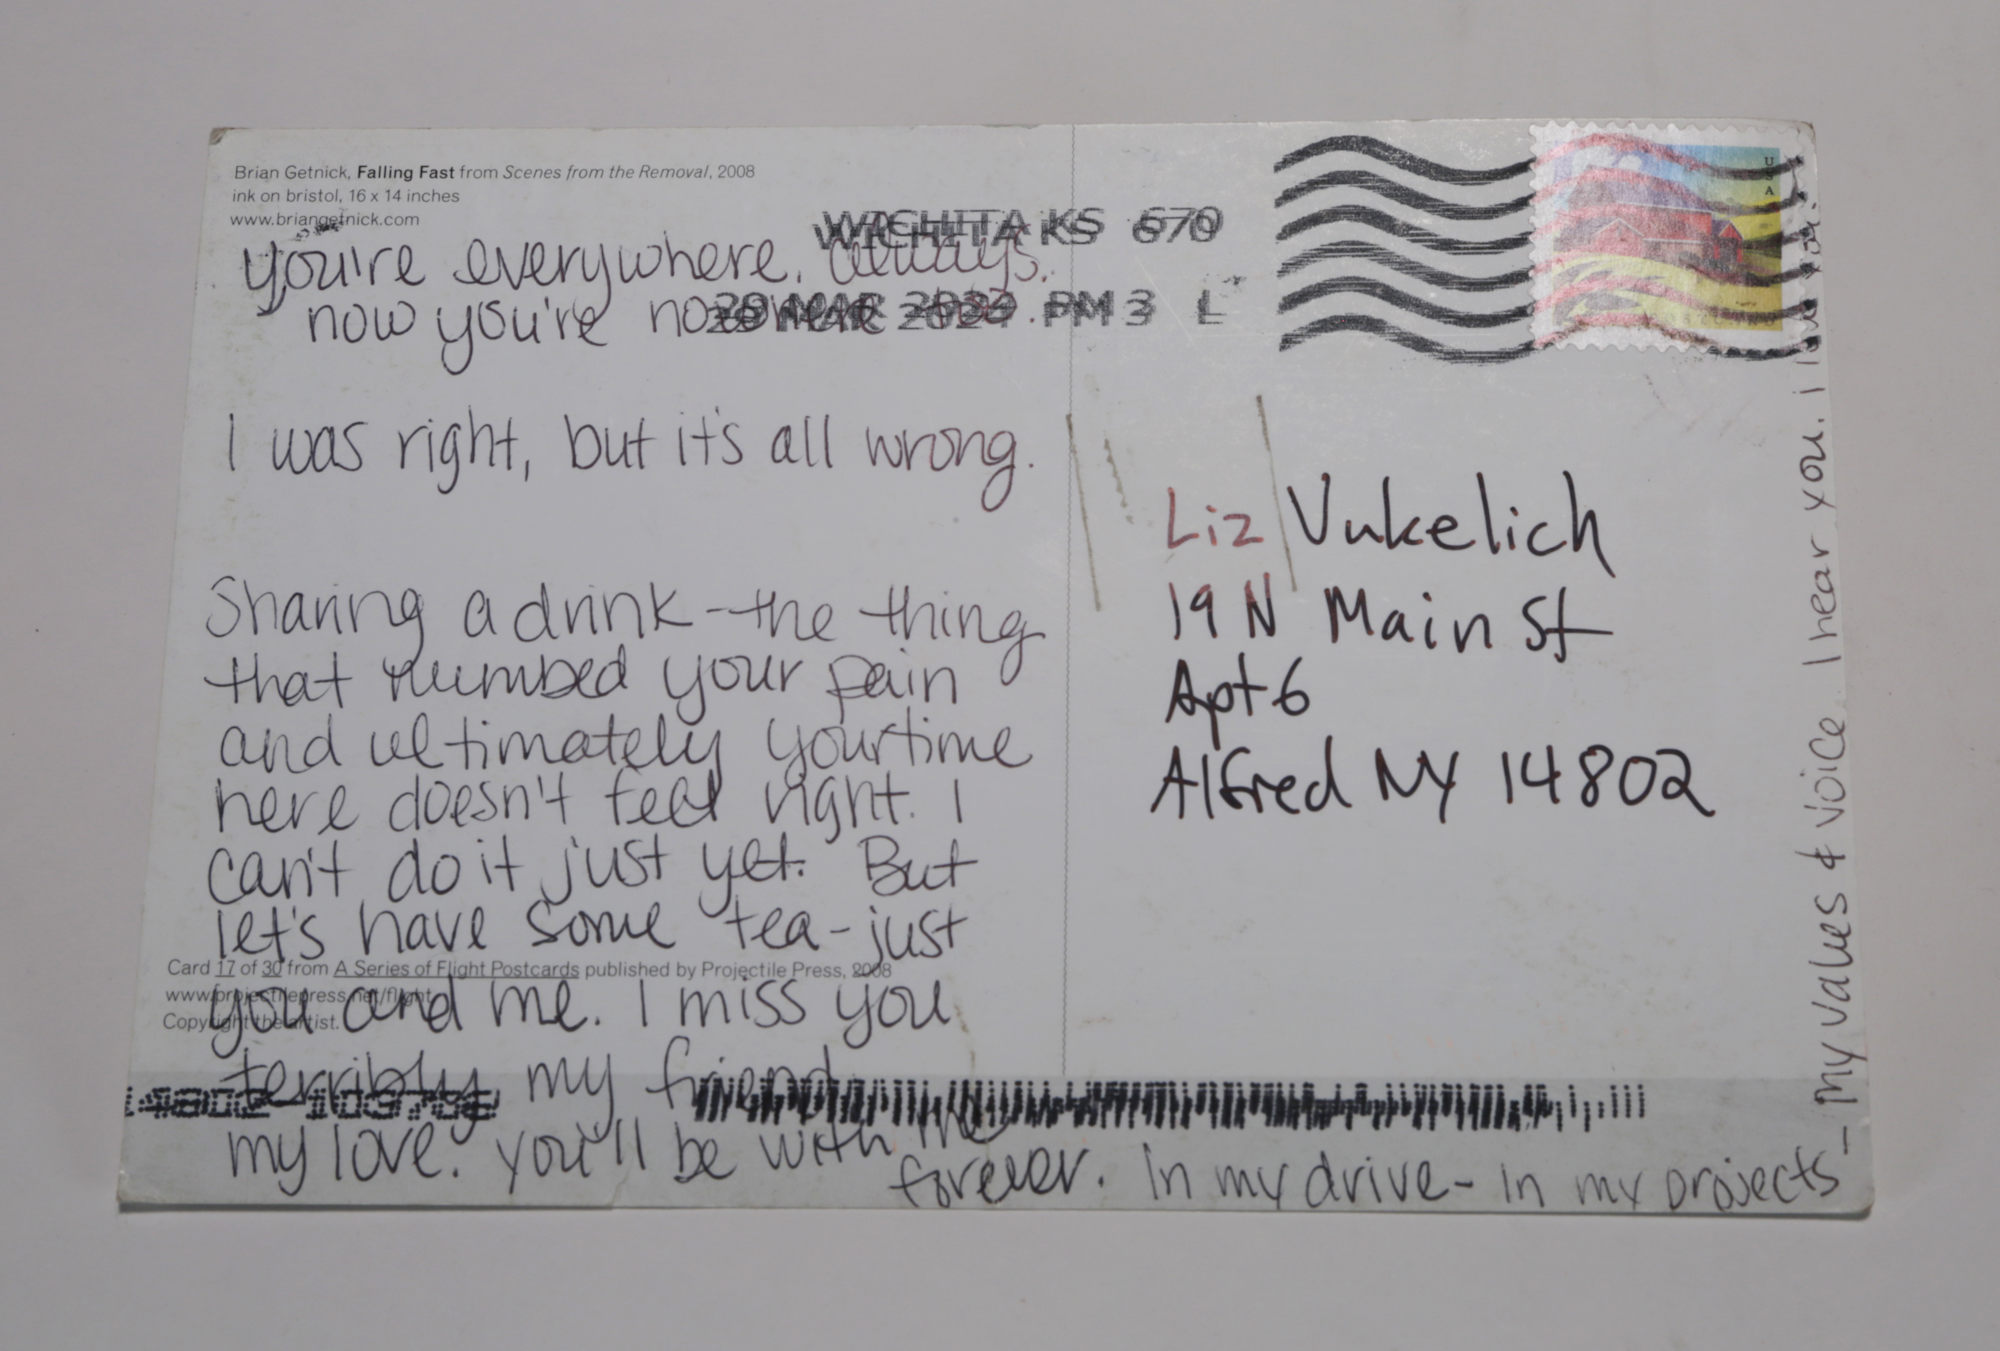 Brian Getnick, Falling Fast from Scenes from the Removal, 2008
ink on bristol, 16 x 14 inches
www.briangetnick.com
WICHITA KS 670
MAR PM 3 L
USA
you're everywhere. always.
now you're nowhere
I was right, but it's all wrong.
Sharing a drink - the thing
that numbed your pain
and ultimately your time
here doesn't feel right. I
can't do it just yet. But
let's have some tea - just
you and me. I miss you
terribly my friend
my love. you'll be with me
forever. In my drive - in my projects
- my values & voice. I hear you. I
Card 17 of 30 from A Series of Flight Postcards published by Projectile Press, 2008
www.projectilepress.net/flight
Copyright the artist.
Liz Vukelich
19 N Main St
Apt 6
Alfred NY 14802